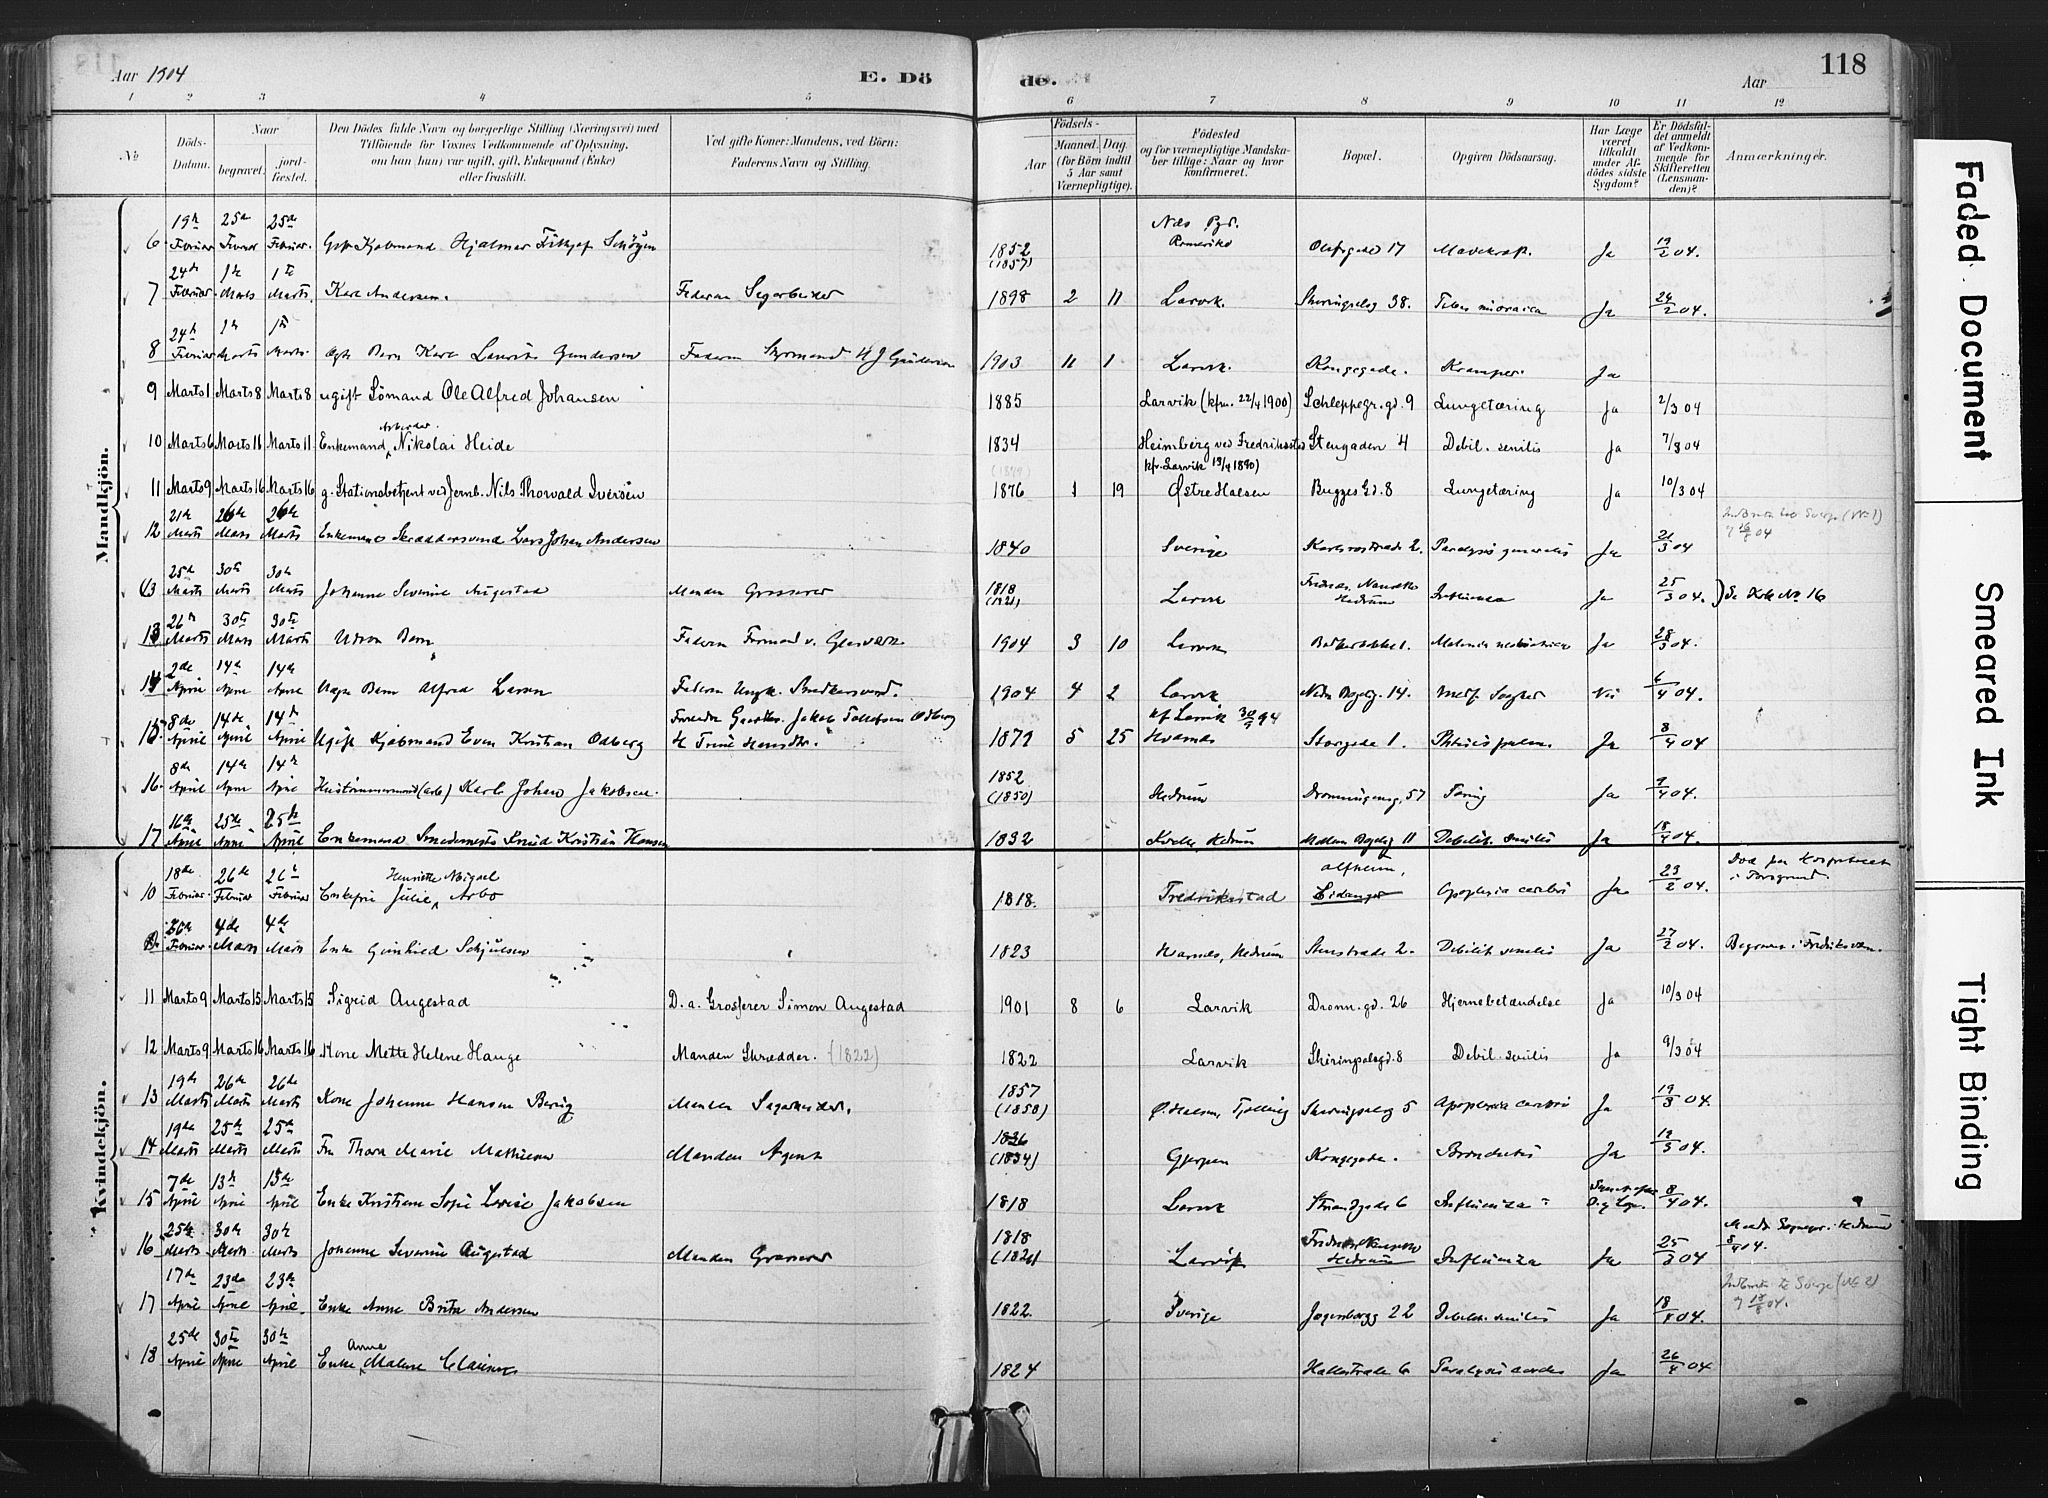 Aar 1904
E. Dö
de.
Aar
118
1 2 3 4 5 6 7 8 9 10 11 12
No
Döds-Datum.
Naar
begravet.
jord-fæstet.
Den Dödes fulde Navn og borgerlige Stilling (Næringsvei) med
Tilföiende for Voxnes Vedkommende af Oplysning,
om han (hun) var ugift, gift, Enkemand (Enke)
eller fraskilt.
Ved gifte Koner: Mandens, ved Börn:
Faderens Navn og Stilling.
Födsels-
Aar
Maaned. Dag.
(for Börn indtil
5 Aar samt
Værnepligtige).
Födested
og for værnepligtige Mandska-
ber tillige: Naar og hvor
konfirmeret.
Bopæl.
Opgiven Dödsaarsag.
Har Læge
været
tilkaldt
under Af-
dödes sidste
Sygdom?
Er Dödsfal-
det anmeldt
af Vedkom-
mende for
Skifteretten
(Lensman-
den)?
Anmærkninger.
Mandkjön.
6 19de Februar 25de Februar 25de Februar Kjøbmand Hjalmar 1852 (1857) Næs Romerike 17 Ja 19/2 04.
7 24de Februar 1ste Marts 1ste Marts Karl Andersen. Faderen Sagarbeider 1898 2 11 Larvik. 38. Ja 24/2 04.
8 24de Februar 1ste Marts 1ste Marts Ægte Barn Karl Laurits Gundersen Faderen Styrmand H J Gundersen 1903 11 1 Larvik. Kongegade. Kramper. Ja
9 Marts 1 Marts 8 Marts 8 ugift Sömand Ole Alfred Johansen 1885 Larvik (kfm. 22/4 1900) Schleppegr.gd. 9 Lungetæring Ja 2/3 04
10 Marts 6 Marts 11 Marts 11 Enkemand Arbeider Nikolai Heide 1834 Heimberg ved Fredrikssted Stengaden 4 Debil. senilis Ja 7/3 04
11 Marts 9 Marts 16 Marts 16 g. Stationsbetjent ved Jernb. Nils Thorvald Iversen 1876 1 19 kfr. Larvik 19/4 1890) Østre Halsen Bugges Gd. 8 Lungetæring Ja 10/3 04
12 21de Marts 26de Marts 26de Marts Enkemand Skræddersvend Lars Johan Andersen 1840 Sverige 2. Paralysis generalis Ja 21/3 04
13 25de Marts 30te Marts 30te Marts Johanne Severine Augestad Manden Grosserer 1818 (1821) Larvik Hedrum Influenza Ja 25/3 04. Se Kvk No 16
13 26de Marts 30te Marts 30te Marts Udøbt Barn Faderen Formand v. Glasværk 1904 3 10 Larvik Ja 28/3 04.
14 2de April 14de April 14de April Uægte Barn Alfred Larsen Faderen Ungk. 1904 4 2 Larvik 14. Nei 6/4 04.
15 8de April 14de April 14de April Ugift Kjøbmand Even Kristian Odberg Forældre Jakob Tollefsen Odberg 1879 5 25 kf Larvik 30/9 94 Hvarnes Storgade 1. Phtisis pulm. Ja 8/4 04
16 8de April 14de April 14de April Hustømmermand (arb) Karl Johan Jakobsen 1852 (1850) Hedrum Dronningensg. 57 Tæring Ja 9/4 04.
17 16de April 25de April 25de April Enkemand Smedemester Knud Kristian Hansen 1832 Kvelle, Hedrum 11 Debilit. senilis Ja 18/4 04.
Kvindekjön.
10 18de Februar 26de Februar 26de Februar Enkefru Julie Henriette Abigael Arbo 1818. Fredrikstad Eidanger Apoplexia cerebri Ja 23/2 04. Død paa Hospitalet i Porsgrund.
26de Februar 4de Marts 4de Marts Enke Gunhild 1823 Hvarnes, Hedrum 2. Debilit senilis Ja 27/2 04. Begraven i Fredriksværn.
11 Marts 9 Marts 15 Marts 15 Sigrid Augestad D. a. Grosserer Simon Augestad 1901 8 6 Larvik Dronn. gd. 26 Hjernebetændelse Ja 10/3 04
12 Marts 9 Marts 16 Marts 16 Kone Mette Helene Hauge Manden Skrædder. (1822) 1822 Larvik Skiringsalsgd. 8 Debil. senilis Ja 9/3 04
13 19de Marts 26de Marts 26de Marts Kone Johanne Hansen Manden Sagarbeider. 1857 (1850) Ø. Halsen, Tjølling 5 Apoplexia cerebri Ja 19/3 04.
14 19de Marts 25de Marts 25de Marts Fru Thora Marie Mathisen Manden Agent 1836 (1834) Gjerpen Kongegade. Bronchitis Ja 19/3 04.
15 7de April 13de April 13de April Enke Kristiane Sofie Lovise Jakobsen 1818 Larvik Strandgade 6 Influenza 8/4 04.
16 25de Marts 30te Marts 30te Marts Johanne Severine Augestad Manden Grosserer 1818 (1821) Larvik Hedrum Influenza Ja 25/3 04 Hedrum 8/4 04.
17 17de April 23de April 23de April Enke Anne Britta Andersen 1822 Sverige 22 Debilit. senilis Ja 18/4 04.
18 25de April 30te April 30te April Enke Anne Malene Clausen 1824 6 Paralysis cordis Ja 26/4 04
Faded Document
Smeared Ink
Tight Binding